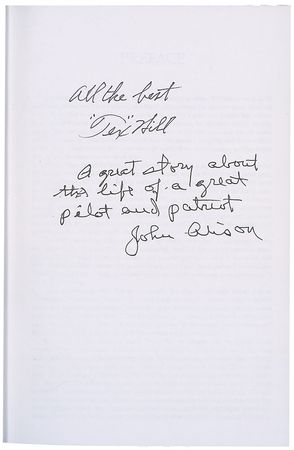 All the best
"Tex" Hill
A great story about
the life of a great
pilot and patriot
John Alison